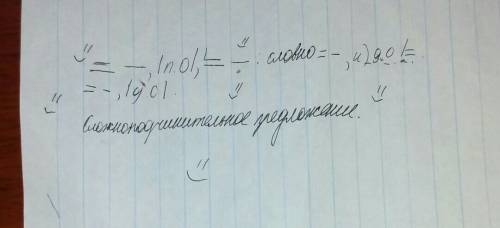 = —, |п.о|, = ∸ : словно = –, и |д.о| =
= –, |д о|.
Сложноподчинительное предложение.